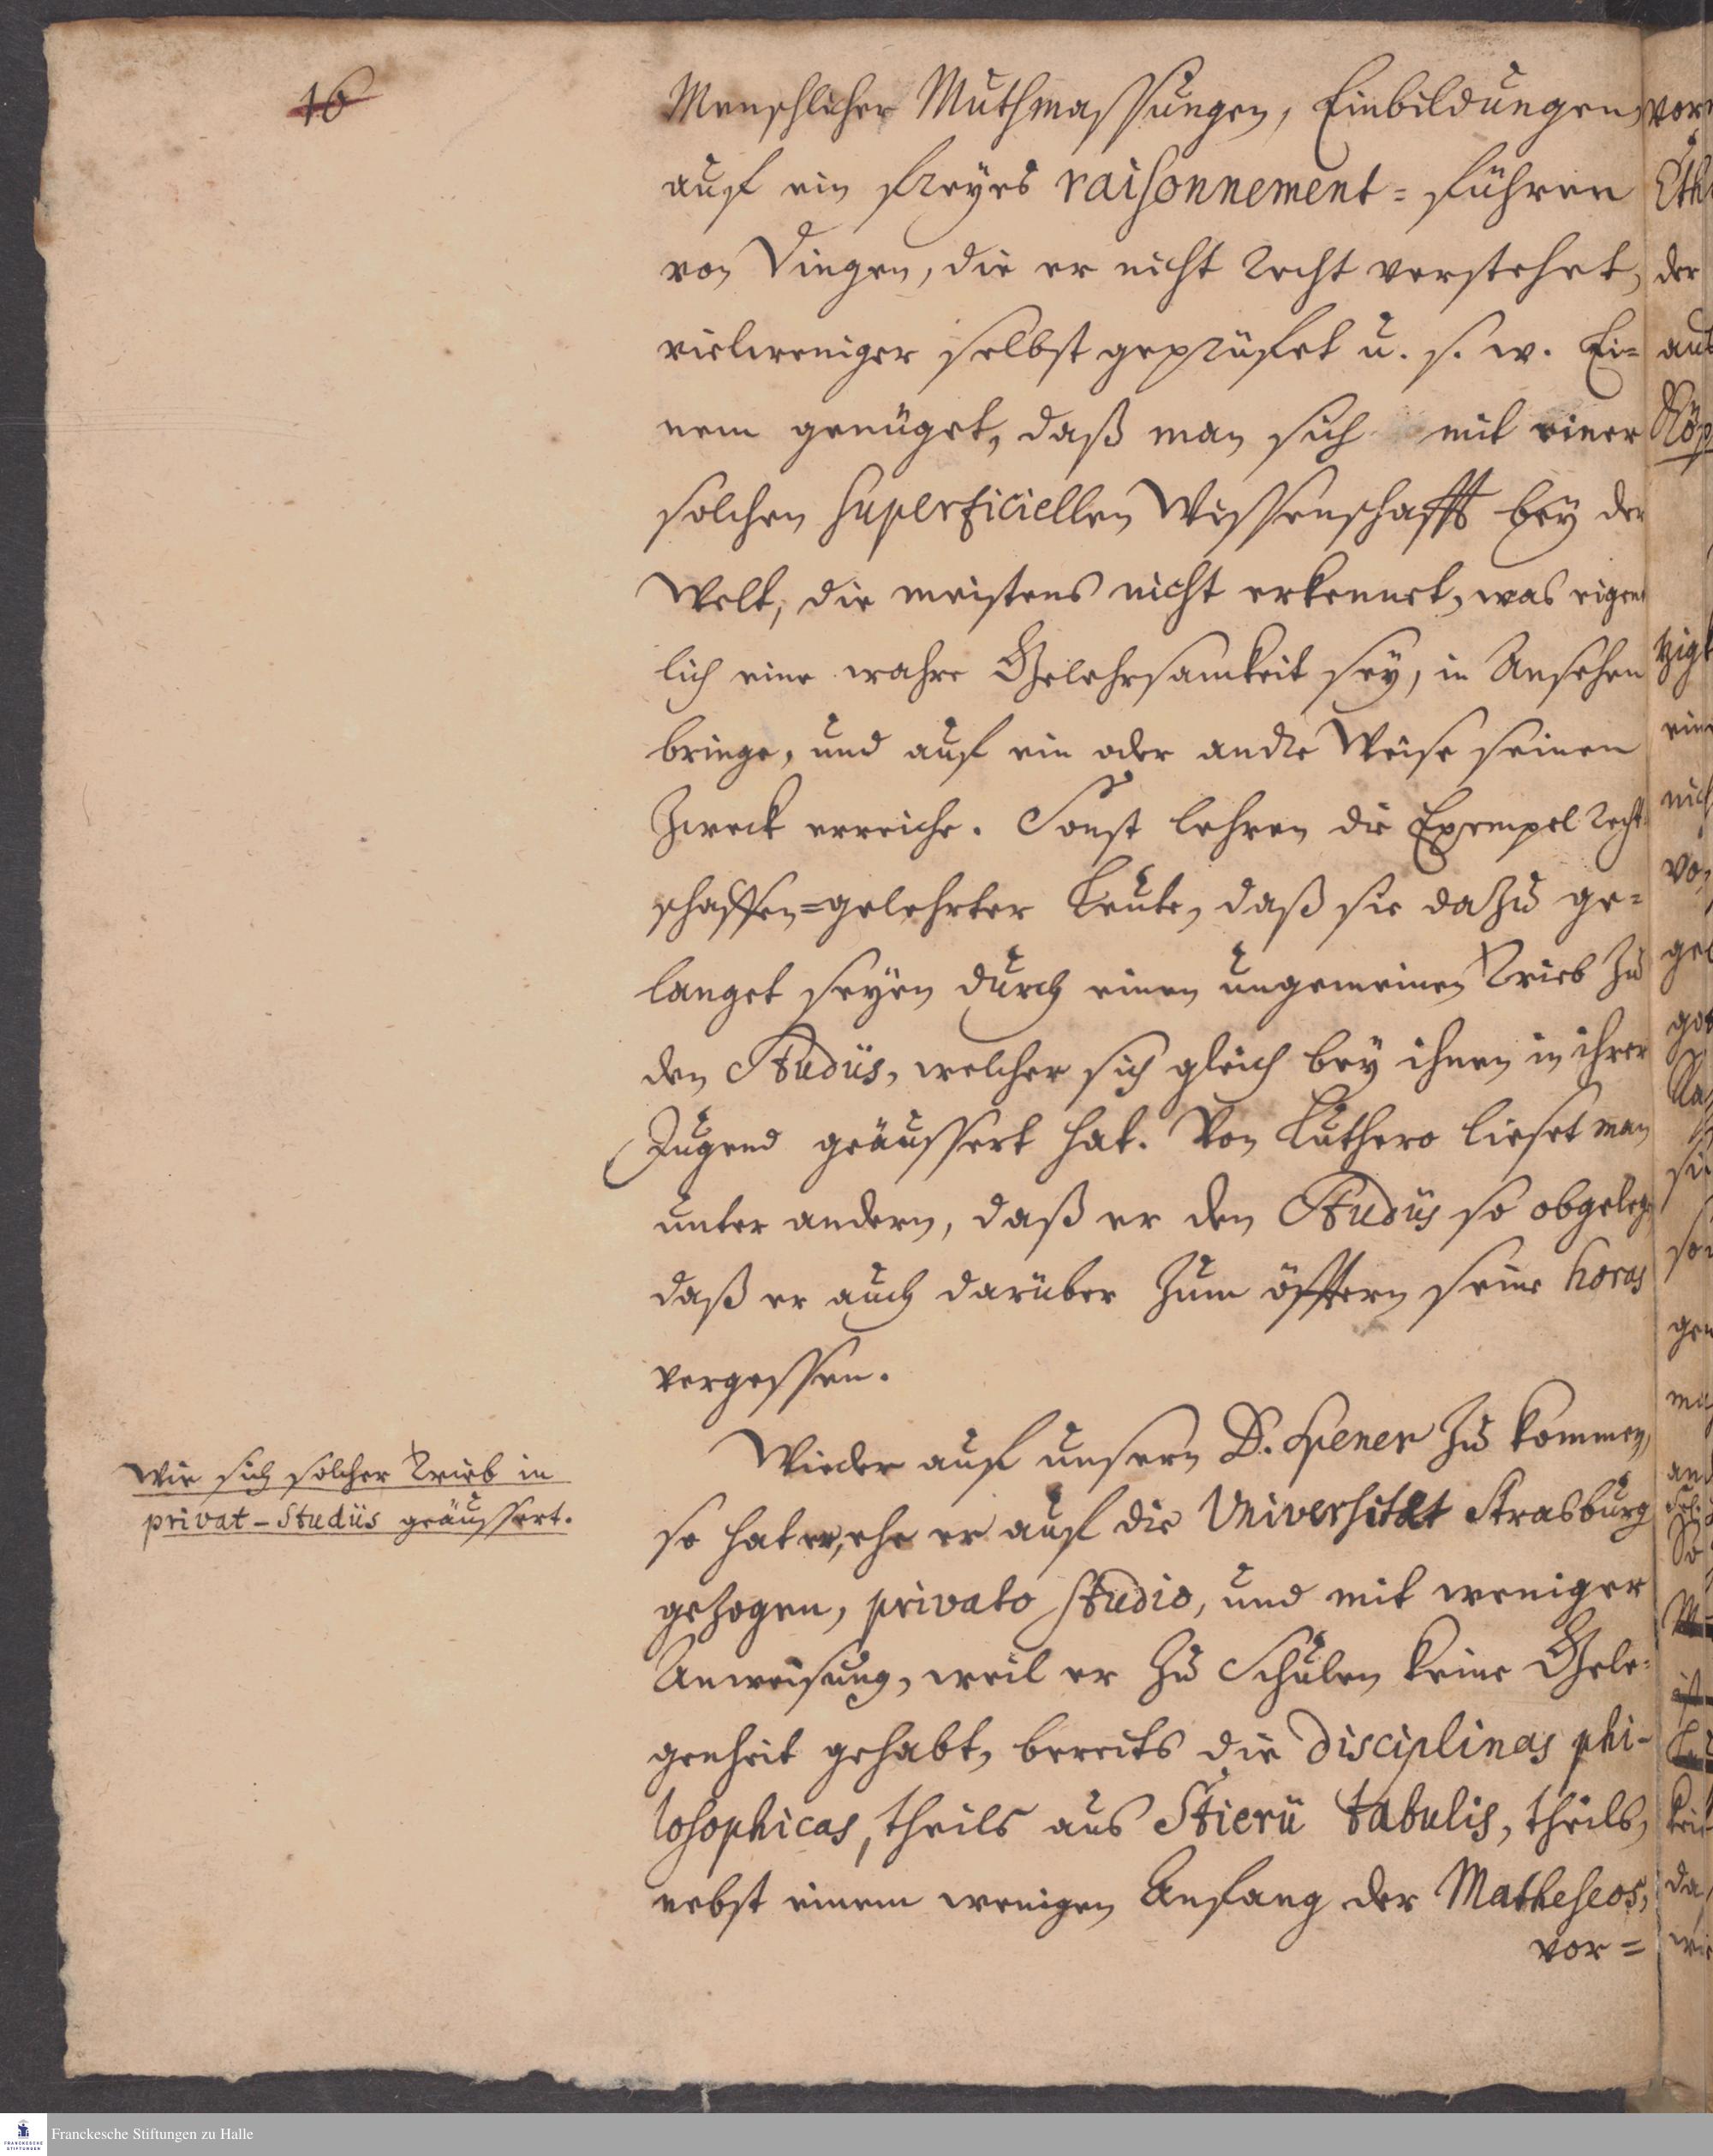 16
Menschlicher Muthmassungen, Einbildungen,
auf ein freyes raisonnement=führen
von Dingen, die er nicht recht verstehet,
vielweniger selbst geprüfet u. s. w. Ei=
nem genüget, daß man sich mit einer
solchen superficiellen Wissenschafft bey der
Welt, die meistens nicht erkennet, was eigent
lich eine wahre Gelehrsamkeit sey, in Ansehen
bringe, und auf ein oder andre Weise seinen
Zweck erreiche. Sonst lehren die Exempel recht
schaffen=gelehrter Leute, daß sie dazu ge=
langet seyen durch einen ungemeinen Trieb zu
den Studiis, welcher sich gleich bey ihnen in ihrer
Jugend geäussert hat. Von Luthero lieset man
unter andern, daß er den Studiis so obgeleg
daß er auch darüber zum öfftern seine horas
vergessen.
Wieder auf unsern D. Spener zu kommen,
Wie sich solcher Trieb in
privat-Studiis geäussert.
so hat er, ehe er auf die Universität Strasburg
gezogen, privato studio, und mit weniger
Anweisung, weil er zu Schulen keine Gele=
genheit gehabt, bereits die disciplinas phi-
losophicas, theils aus Stierii tabulis, theils,
nebst einem wenigen Anfang der Matheseos,
vor=
Franckesche Stiftungen zu Halle